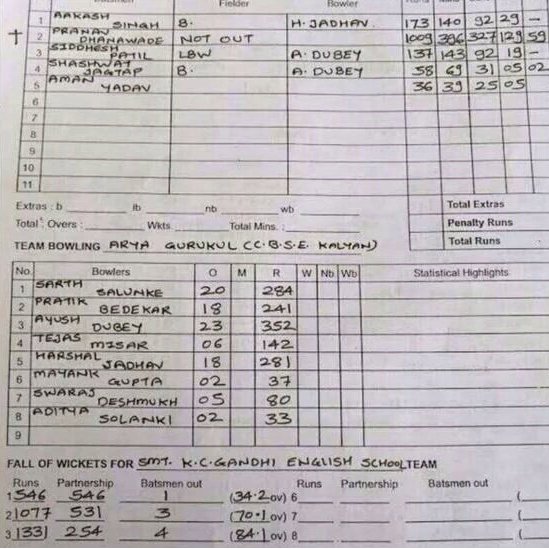 Fielder Bowler
1 AAKASH SINGH B. H. JADHAV. 173 140 92 29 -
2 PRANAV DHANAWADE NOT OUT 1009 396 327 129 59
3 SIDDHESH PATIL LBW A. DUBEY 137 143 92 19 -
4 SHASHWAT JAGTAP B. A. DUBEY 58 69 31 05 02
5 AMAN YADAV 36 39 25 05
6
7
8
9
10
11
Extras : b lb nb wb Total Extras
Total : Overs : Wkts Total Mins. : Penalty Runs
Total Runs
TEAM BOWLING ARYA GURUKUL (C.B.S.E. KALYAN)
No. Bowlers O M R W Nb Wb Statistical Highlights
1 SARTH SALUNKE 20 284
2 PRATIK BEDEKAR 18 241
3 AYUSH DUBEY 23 352
4 TEJAS MISAR 06 142
5 HARSHAL JADHAV 18 281
6 MAYANK GUPTA 02 37
7 SWARAJ DESHMUKH 05 80
8 ADITYA SOLANKI 02 33
9
FALL OF WICKETS FOR SMT. K.C.GANDHI ENGLISH SCHOOL TEAM
Runs Partnership Batsmen out Runs Partnership Batsmen out
1 546 546 1 (34.2 ov) 6
2 1077 531 3 (70.1 ov) 7
3 1331 254 4 (84.1 ov) 8